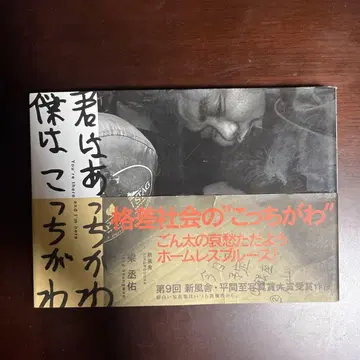 君はあっちがわ
僕はこっちがわ
You're there and I'm here
格差社会の"こっちがわ"
ごん太の哀愁ただよう
ホームレスブルース!
第9回 新風舎・平間至写真賞大賞受賞作品
新風舎